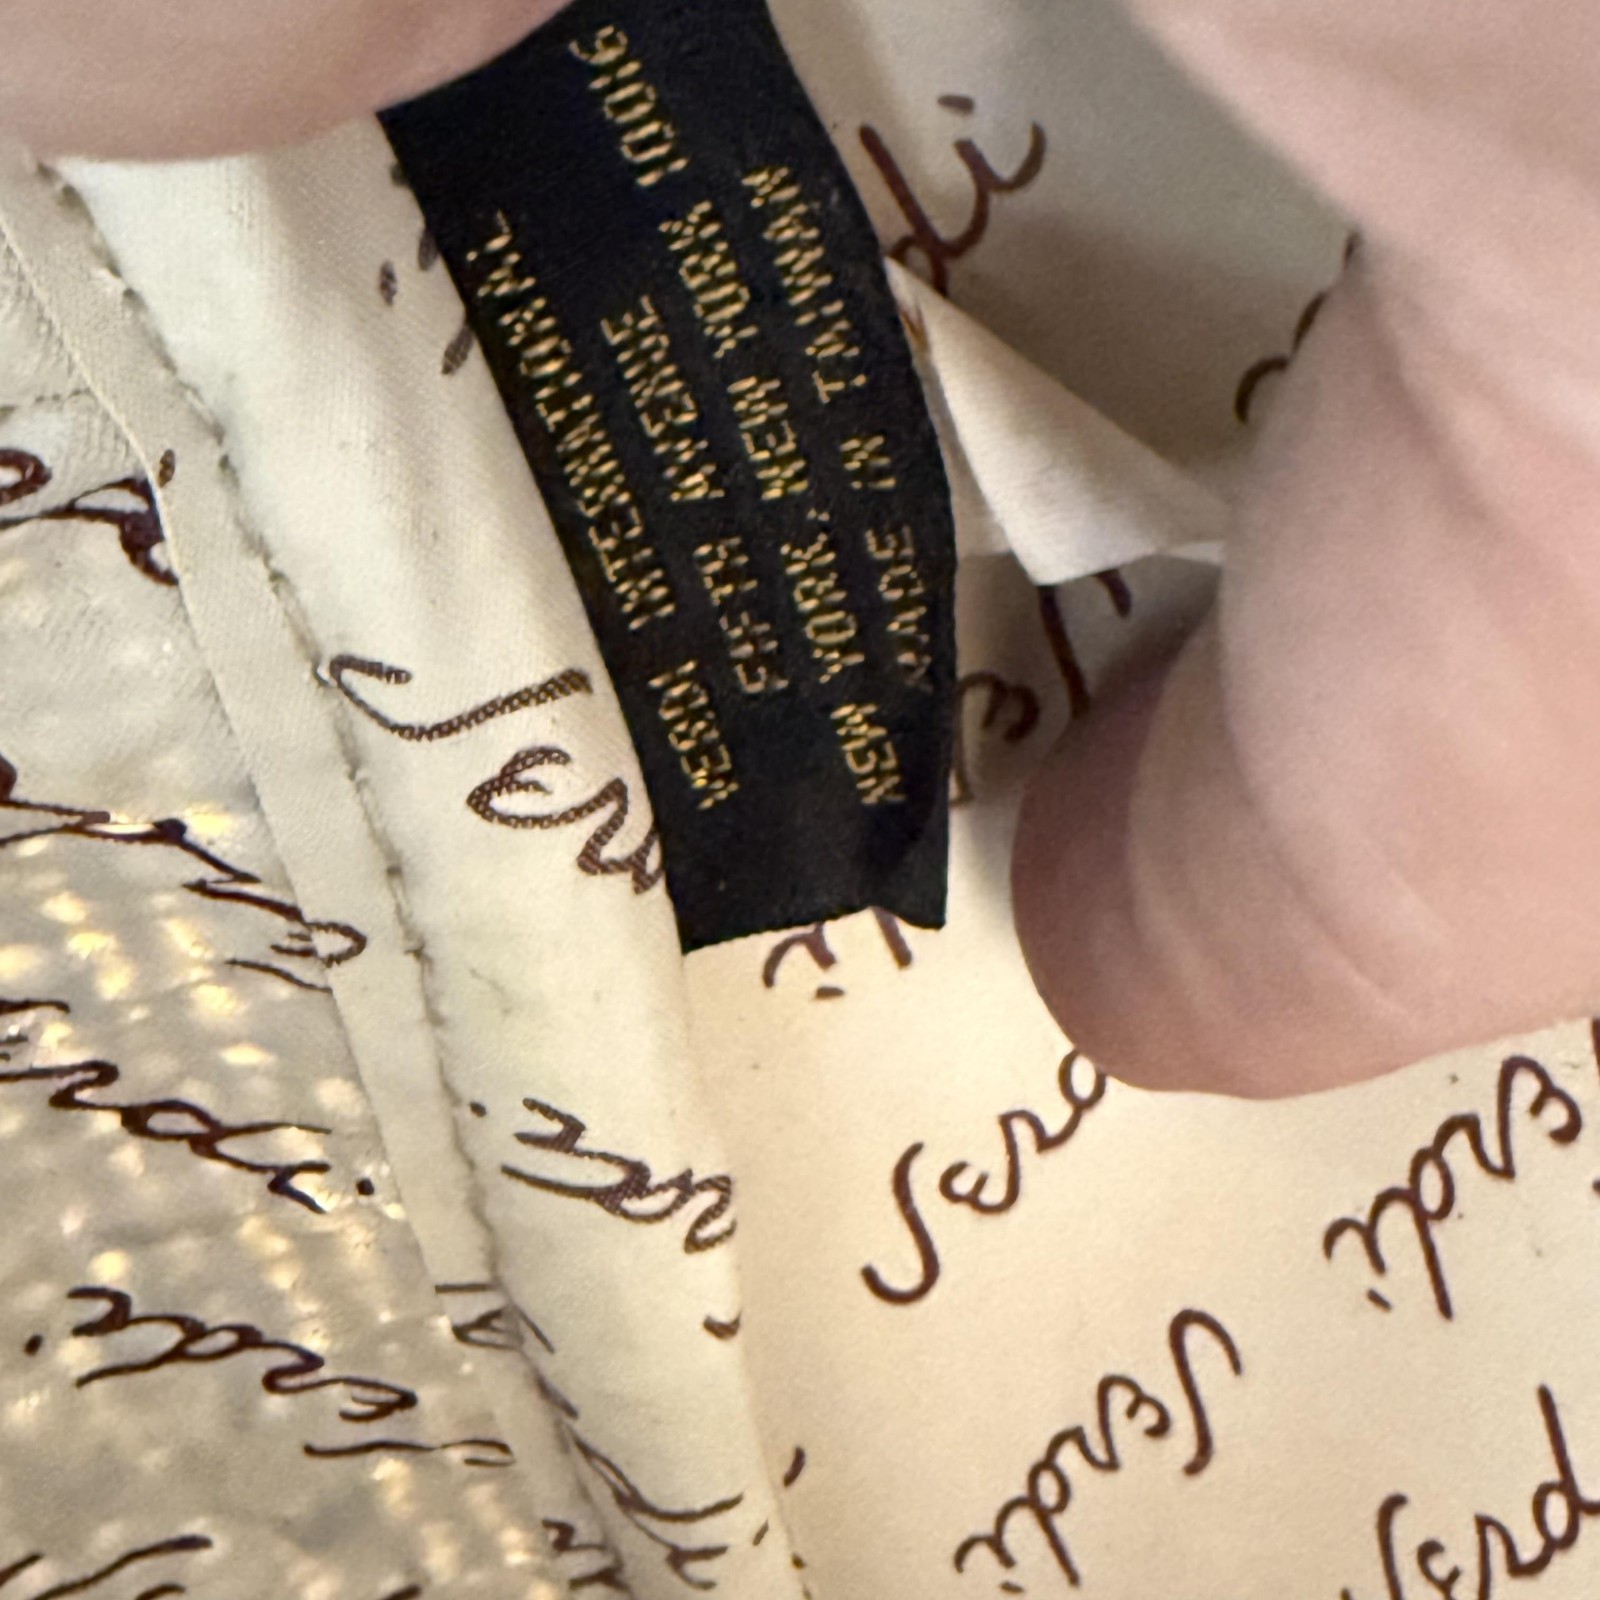 VERDI INTERNATIONAL
FIFTH AVENUE
NEW YORK, NEW YORK 10016
MADE IN TAIWAN
di
Ver
di
Verd
erdi
Verdi
Verdi
erdi
rdi
Verd